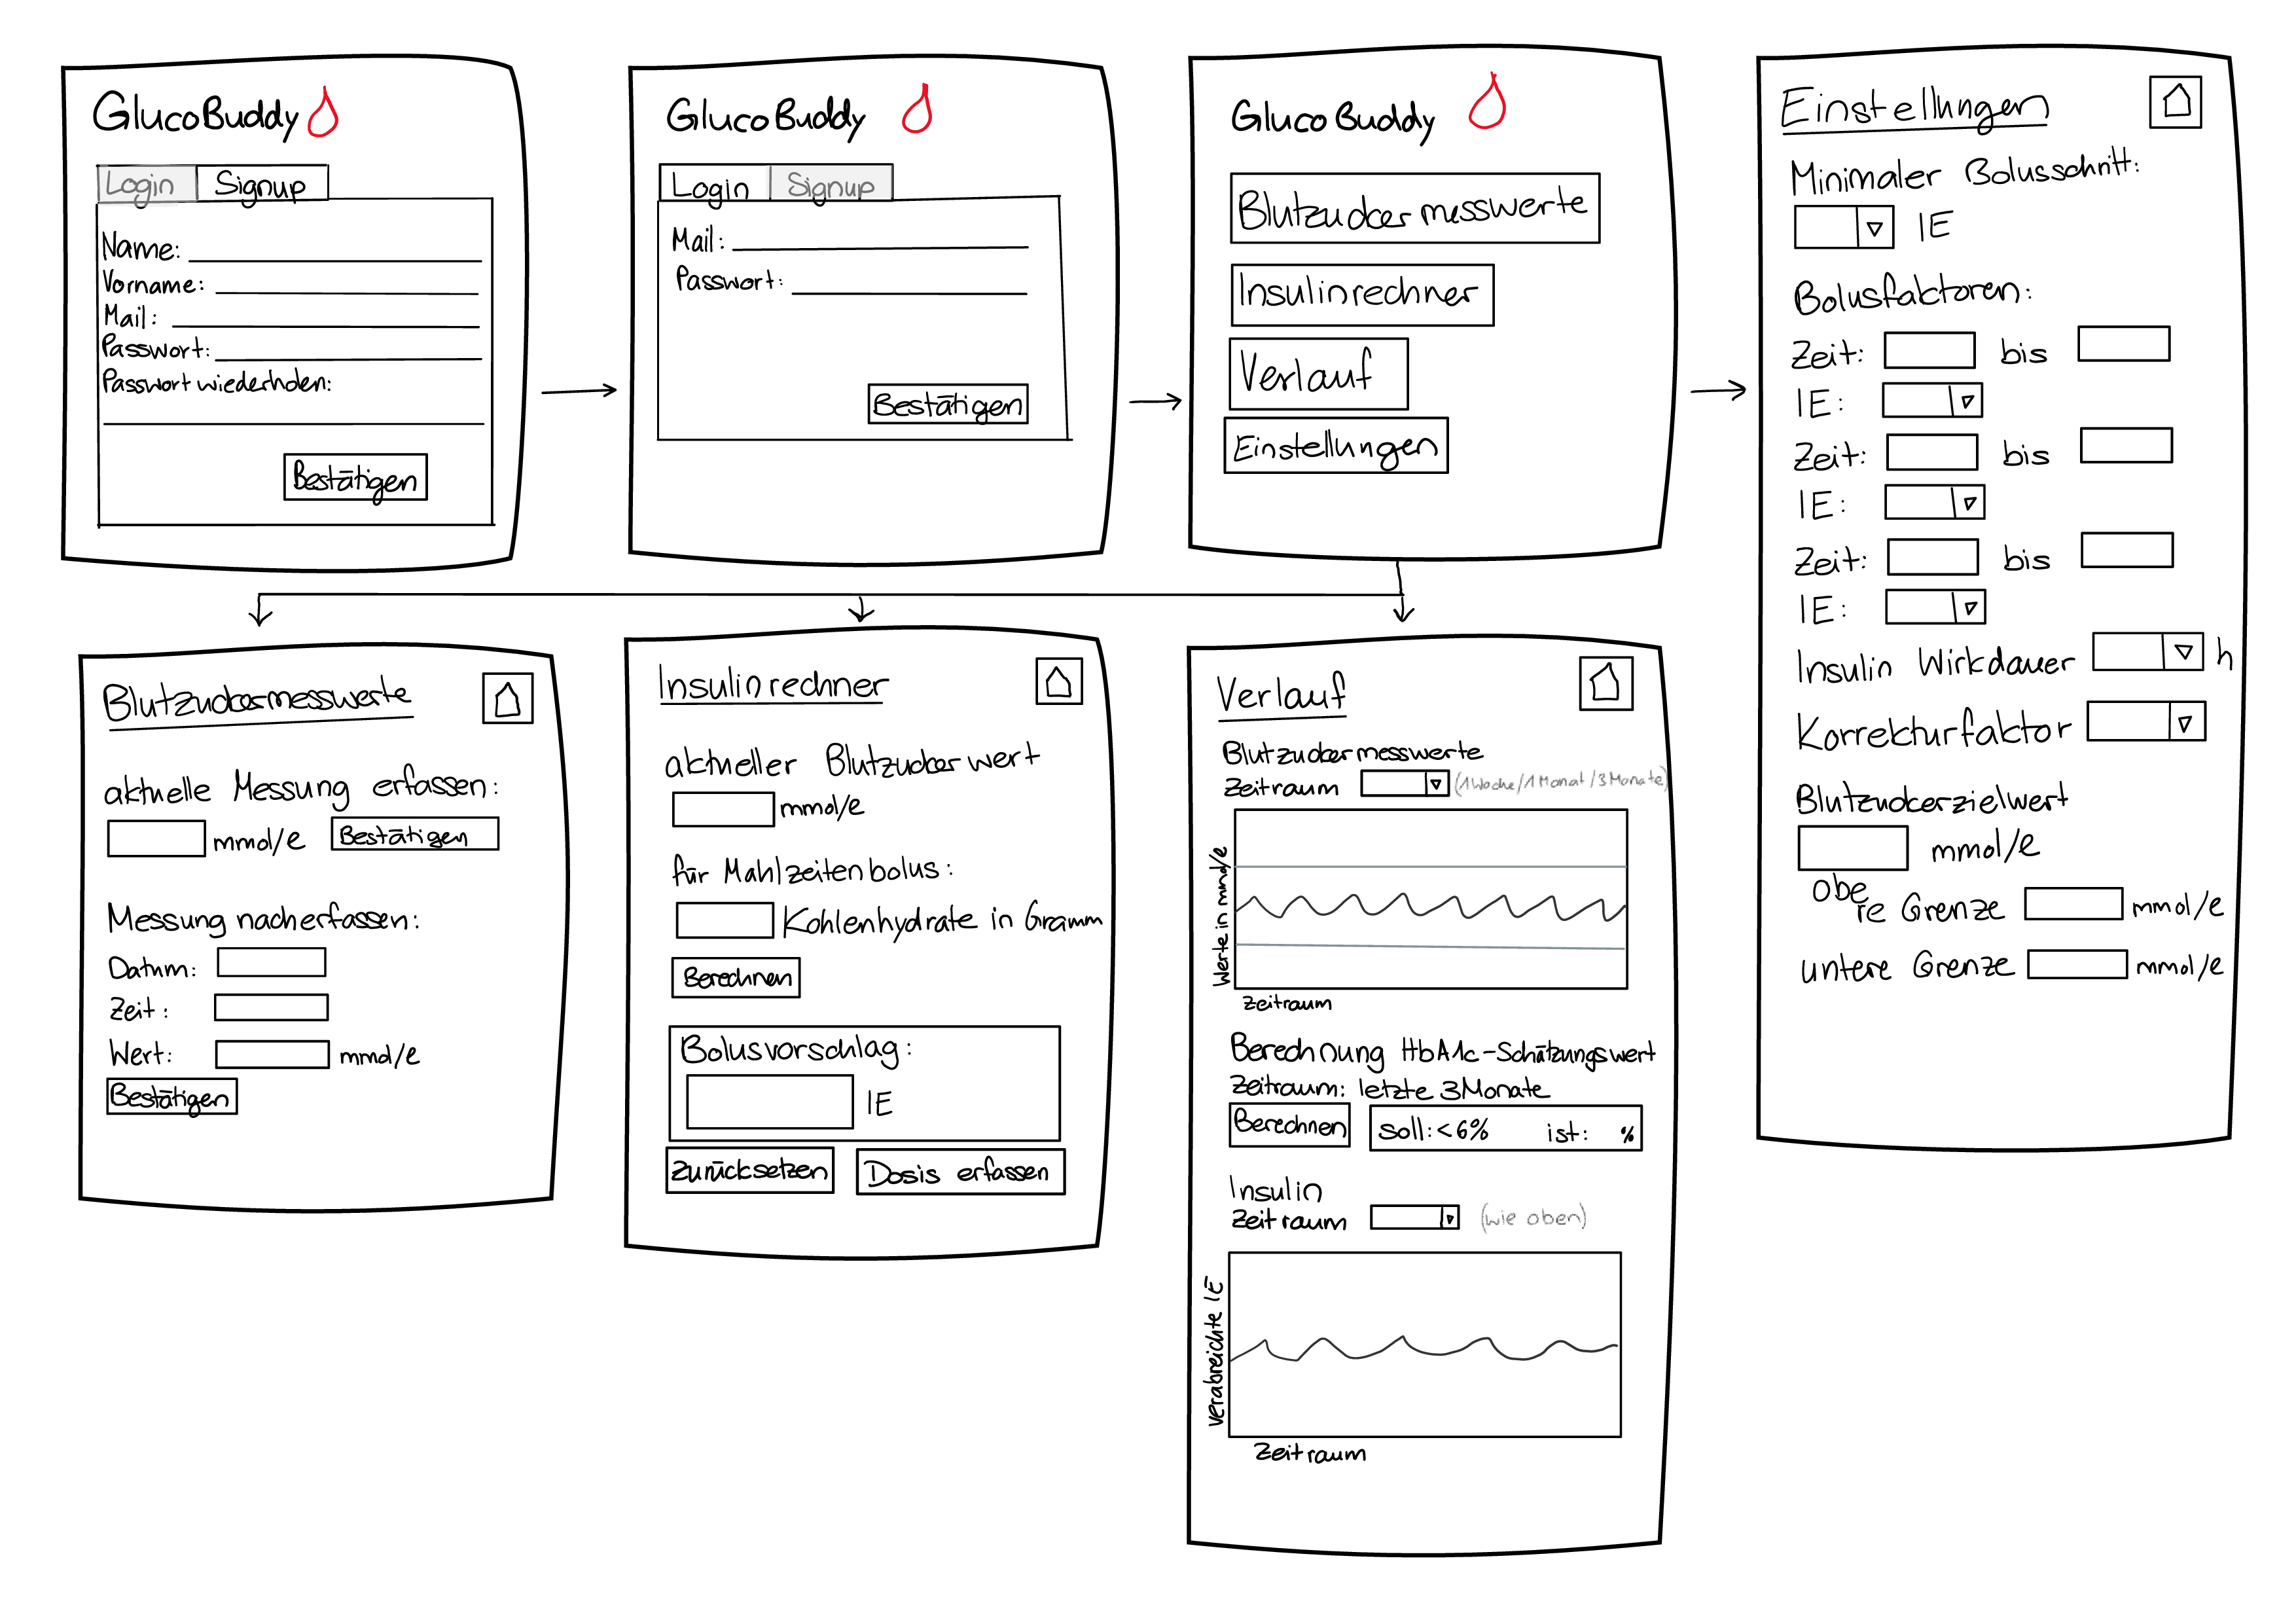 GlucoBuddy
Login Signup
Name:
Vorname:
Mail:
Passwort:
Passwort wiederholen:
Bestätigen
GlucoBuddy
Login Signup
Mail:
Passwort:
Bestätigen
GlucoBuddy
Blutzuckermesswerte
Insulinrechner
Verlauf
Einstellungen
Einstellungen
Minimaler Bolusschritt:
IE
Bolusfaktoren:
Zeit: bis
IE:
Zeit: bis
IE:
Zeit: bis
IE:
Insulin Wirkdauer h
Korrekturfaktor
Blutzuckerzielwert
mmol/l
obere Grenze mmol/l
untere Grenze mmol/l
Blutzuckermesswerte
aktuelle Messung erfassen:
mmol/l Bestätigen
Messung nacherfassen:
Datum:
Zeit:
Wert: mmol/l
Bestätigen
Insulinrechner
aktueller Blutzuckerwert
mmol/l
für Mahlzeitenbolus:
Kohlenhydrate in Gramm
Berechnen
Bolusvorschlag:
IE
Zurücksetzen Dosis erfassen
Verlauf
Blutzuckermesswerte
Zeitraum (1 Woche/1 Monat/3 Monate)
Werte in mmol/l
Zeitraum
Berechnung HbA1c-Schätzungswert
Zeitraum: letzte 3 Monate
Berechnen soll: <6% ist: %
Insulin
Zeitraum (wie oben)
verabreichte IE
Zeitraum